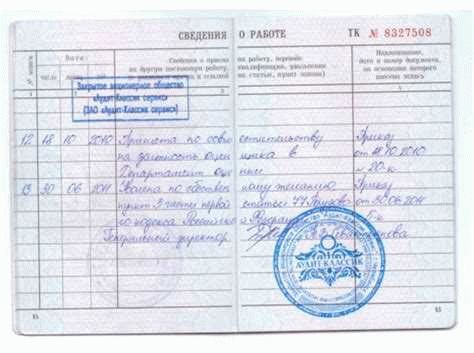 СВЕДЕНИЯ О РАБОТЕ ТК № 8327508
Дата
№ записи
число
Сведения о приеме на работу, переводе
на другую постоянную работу, квалификации, увольнении
статью, пункт закона)
Наименование,
дата и номер документа,
на основании которого
внесена запись
Закрытое акционерное общество
«Аудит-Классик сервис»
(ЗАО «Аудит-Классик сервис»)
12 18 10 2010 Принята по совместительству Приказ
на должность оценщика в от 18.10.2010
Департамент № 20-к
13 30 06 2011 Уволена по собственному желанию Приказ
пункт 3 части первой статьи 77 Трудового от 30.06.2011
кодекса Российской Федерации
Генеральный директор
АУДИТ-КЛАССИК